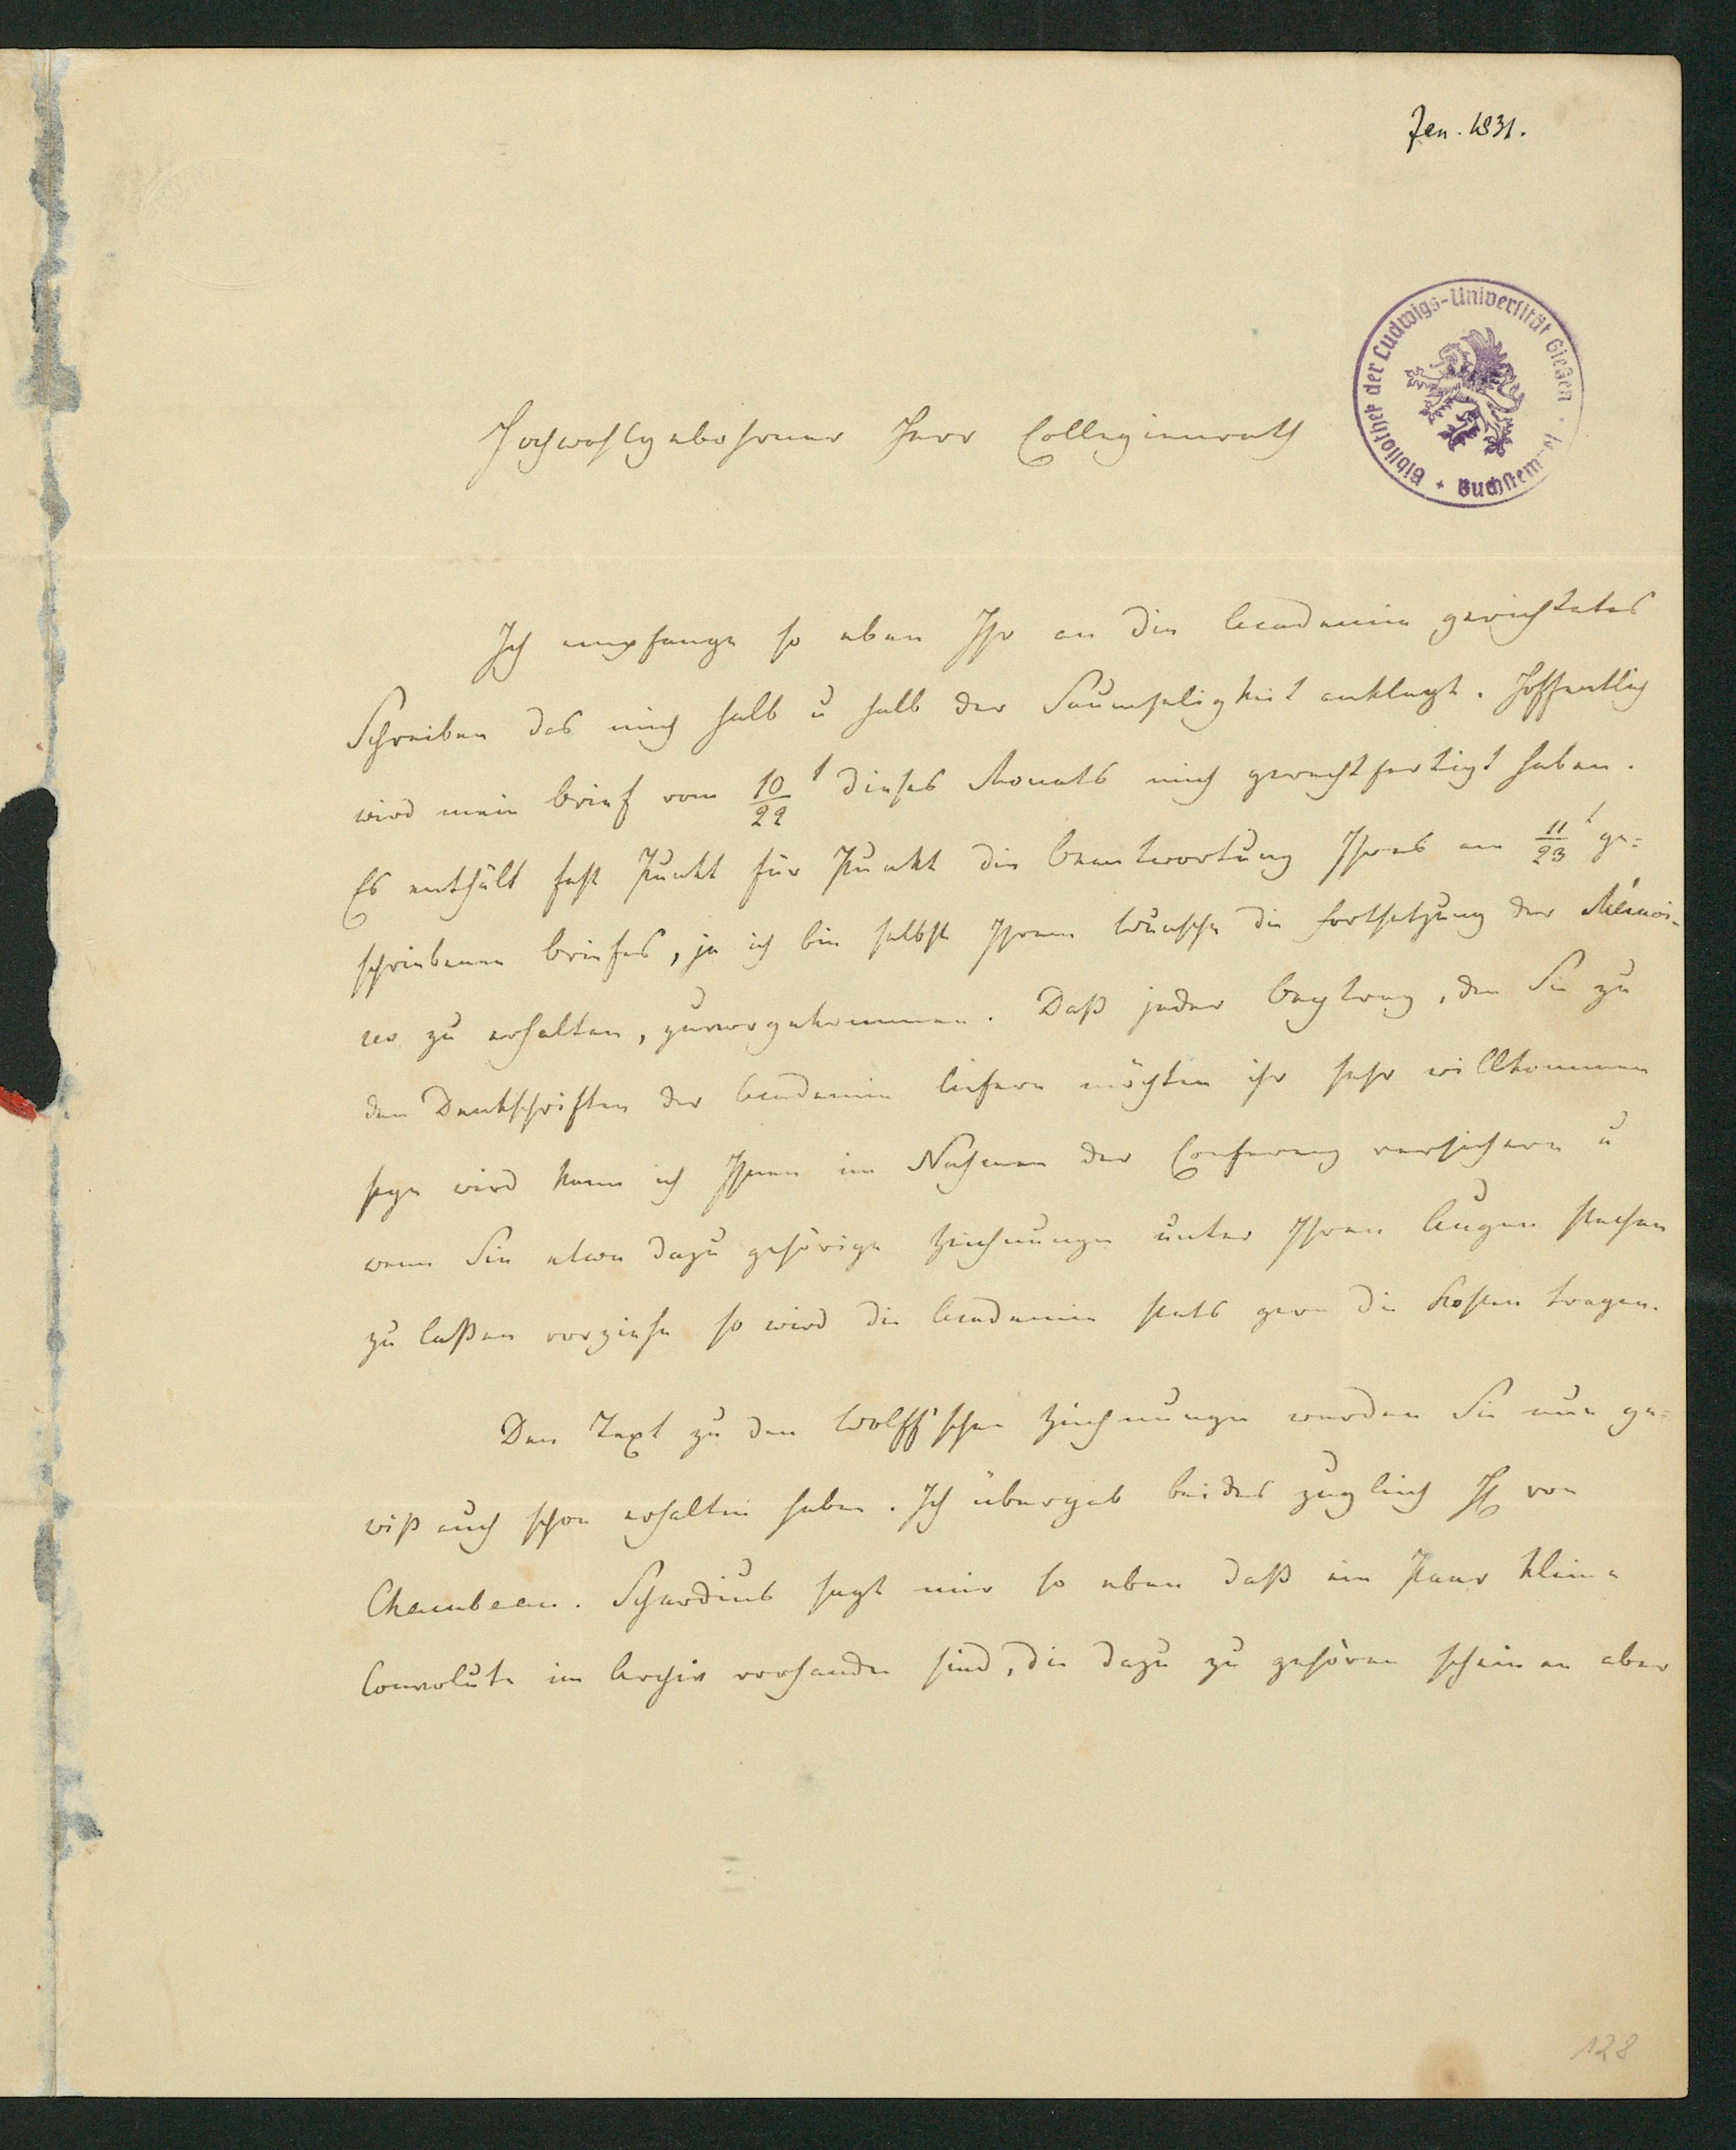 Jan. 1831.
Bibliothek der Ludwigs-Universität Gießen
Buchstem-
Hochwohlgebohrner Herr Collegienrath
Ich empfange so eben Ihr an die Academie gerichtetes
Schreiben das mich halb u halb der Saumseligkeit anklagt. Hoffentlich
wird mein Brief vom 10/22 t dieses Monats mich gerechtfertigt haben.
Es enthält fast Punkt für Punkt die Beantwortung Ihres am 11/23 t ge-
schriebenen Briefes, ja ich bin selbst Ihrem Wunsche die Fortsetzung der Mémoi-
res zu erhalten, zuvorgekommen. Daß jeder Beytrag, den Sie zu
den Denkschriften der Academie liefern möchten ihr sehr willkommen
seyn wird kann ich Ihnen im Nahmen der Conferenz versichern u
wenn Sie etwa dazu gehörige Zeichnungen unter Ihren Augen stechen
zu laßen vorziehen so wird die Academie stets gern die Kosten tragen.
Den Text zu den Wolff'schen Zeichnungen werden Sie nun ge-
wiß auch schon erhalten haben. Ich übergab beides zugleich H von
Chambeau. Schardius sagt mir so eben daß ein Paar kleine
Convolute im Archiv vorhanden sind, die dazu zu gehören scheinen aber
128